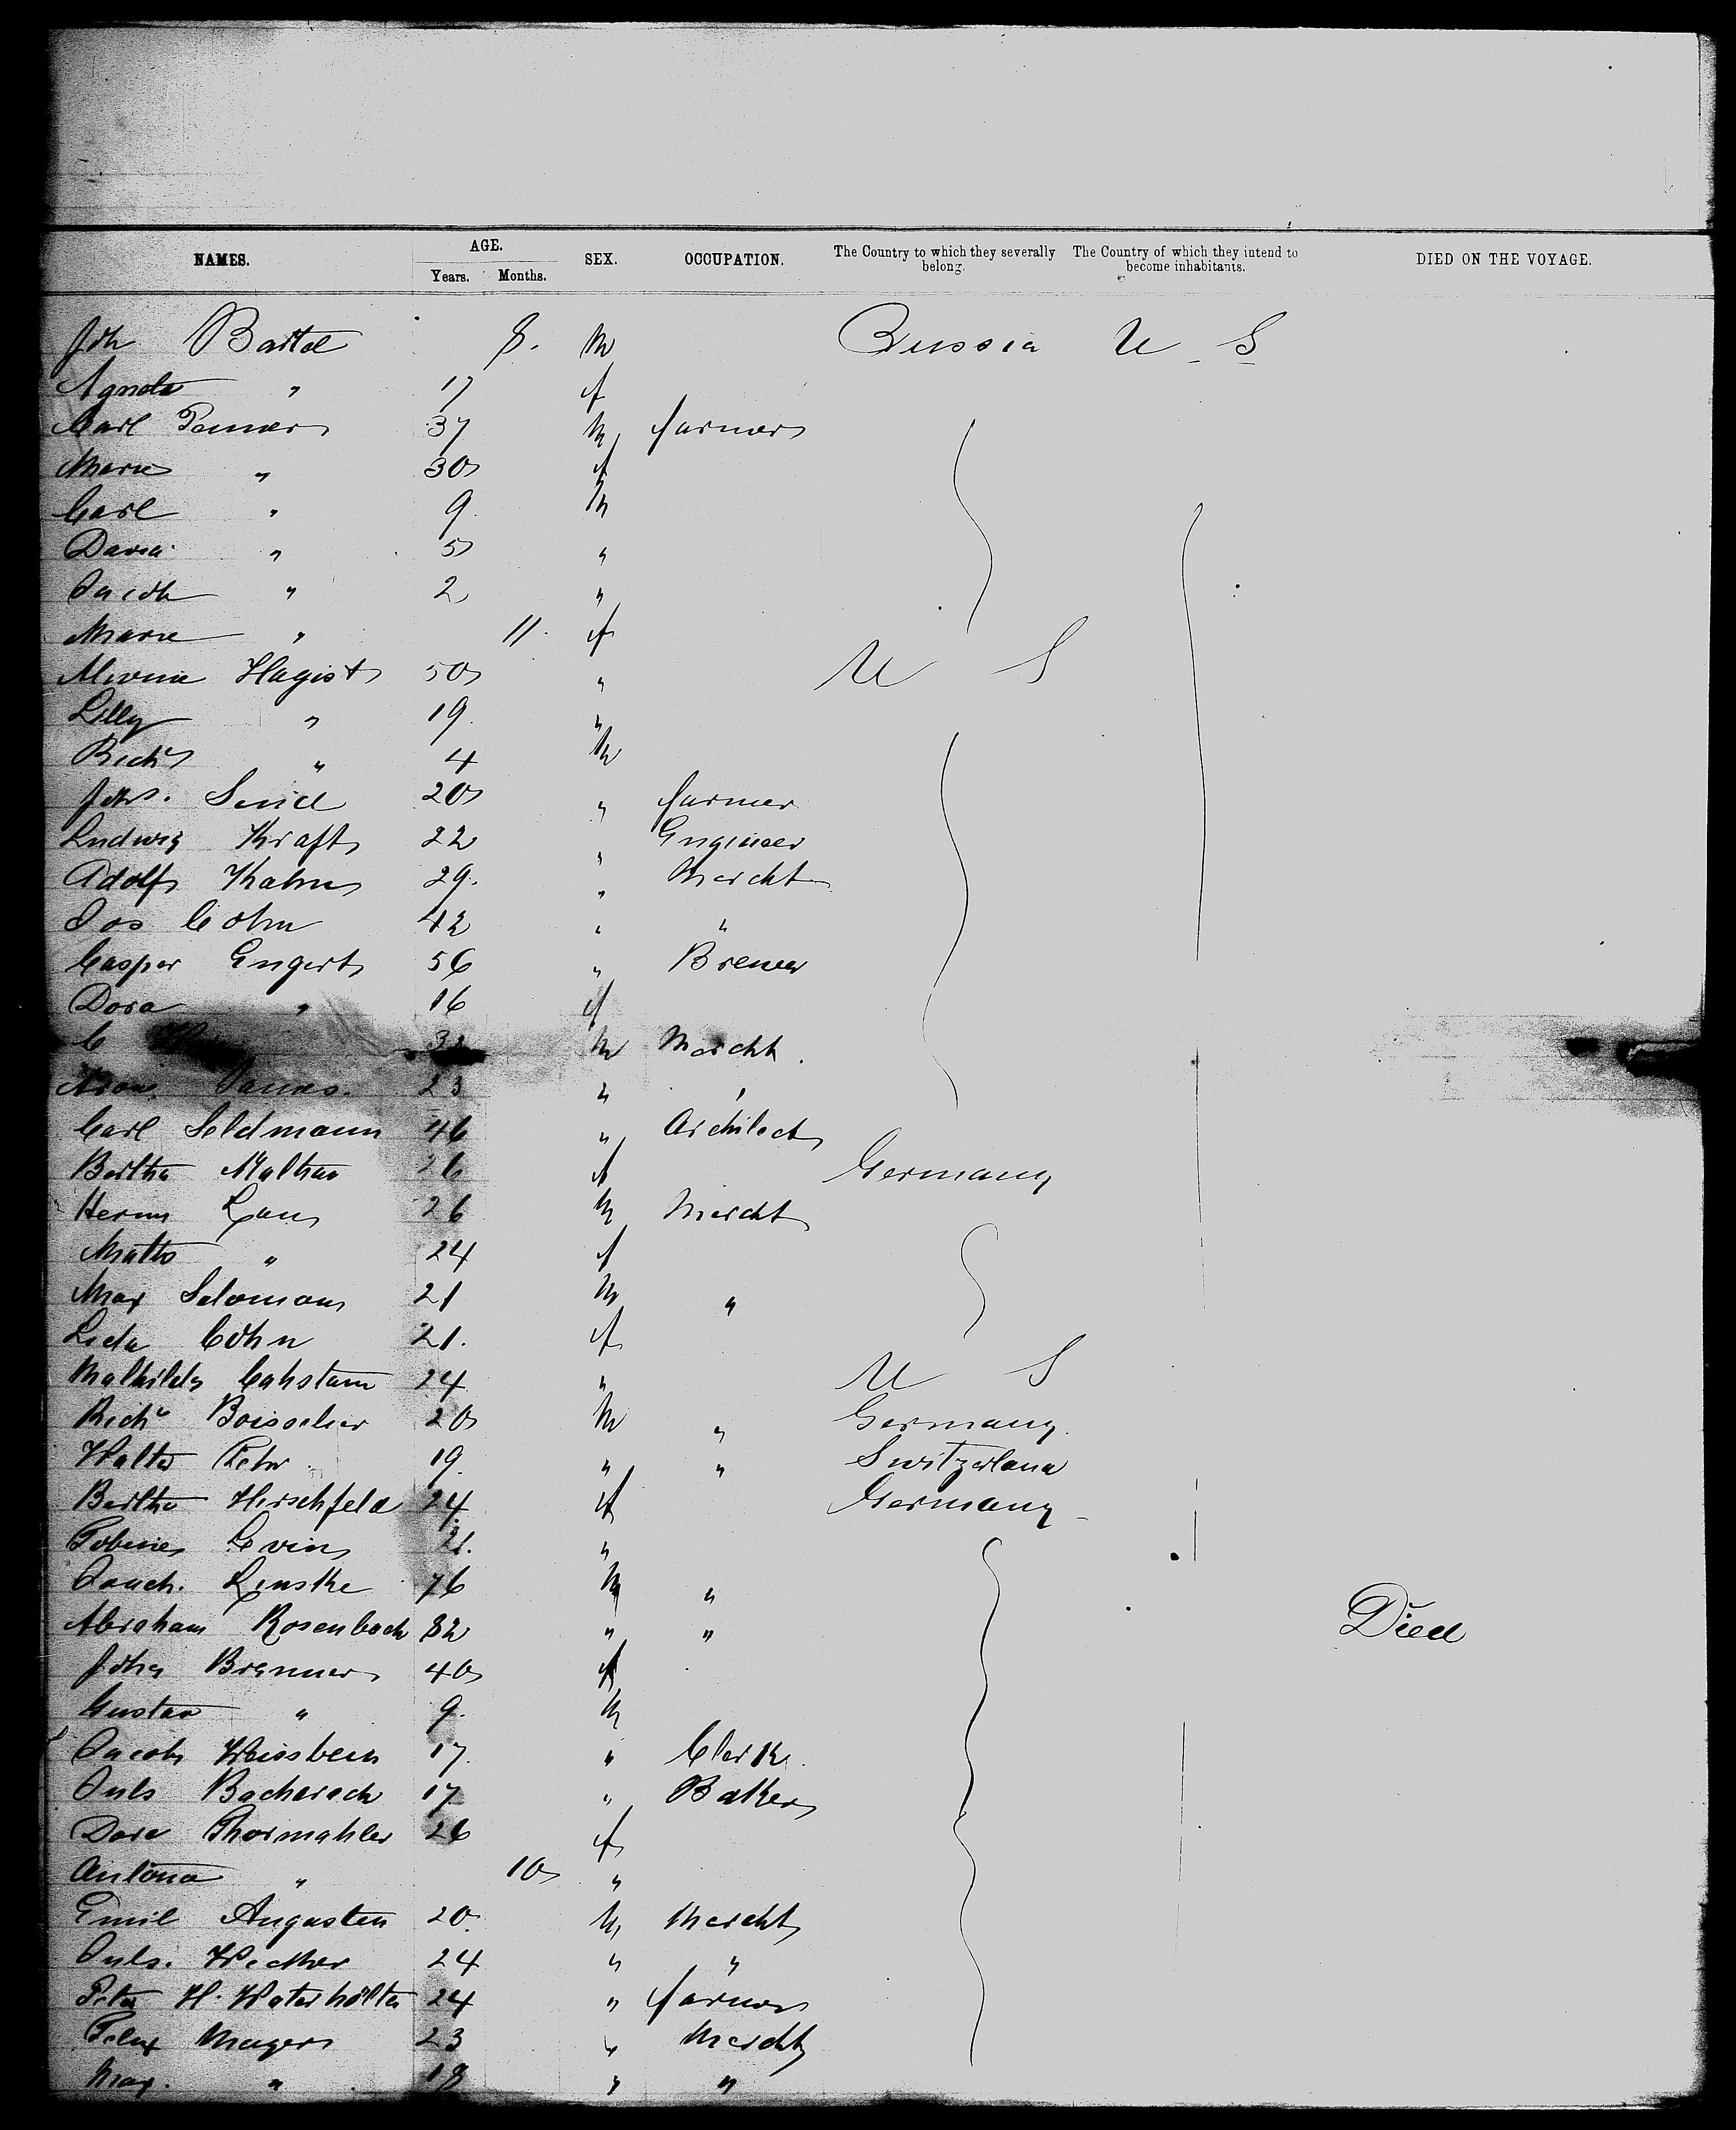 NAMES. AGE. Years. Months. SEX. OCCUPATION. The Country to which they severally belong. The Country of which they intend to become inhabitants. DIED ON THE VOYAGE.
Joh Bartel 8. M Russia U S
" 17 f
Carl Penner 37 M farmer
Marie " 30 f
Carl " 9 M
David " 5 "
Jacob " 2 "
Marie " 11. f
Hagist 50 " U S
Lilly " 19. "
Richd " 4 M
Johs. 20 " farmer
Ludwig Kraft 22 " Engineer
Adolf Kahn 29. " Mercht
Jos Cohn 42 " "
Casper Engert 56 " Brewer
Dora " 16 f
C M Mercht.
23 " "
Carl Feldmann 46 " Architect
Bertha Nathan 26 f Germany
Herm 26 M Mercht
" 24 f
Max Salomon 21 M "
Leda Cohn 21. f
Mathilde 24 " U S
Richd Boisselier 20 M " Germany.
Walter 19. " " Switzerland
Bertha Hirschfeld 24 f Germany
Levin 21. "
76 M "
Abraham Rosenbach 82 " " Died
Joha 40 f
Gustav " 9. M
Jacob Weissbein 17. " Clerk.
Juls Bacharach 17 " Baker
Dora Thormahlen 26 f
Antona " 10 "
Emil Augusten 20. M Mercht
Juls. 24 " "
Peter H. Waterhölter 24 " farmer
Felix Mayer 23 " Mercht
Max. " 18 " "